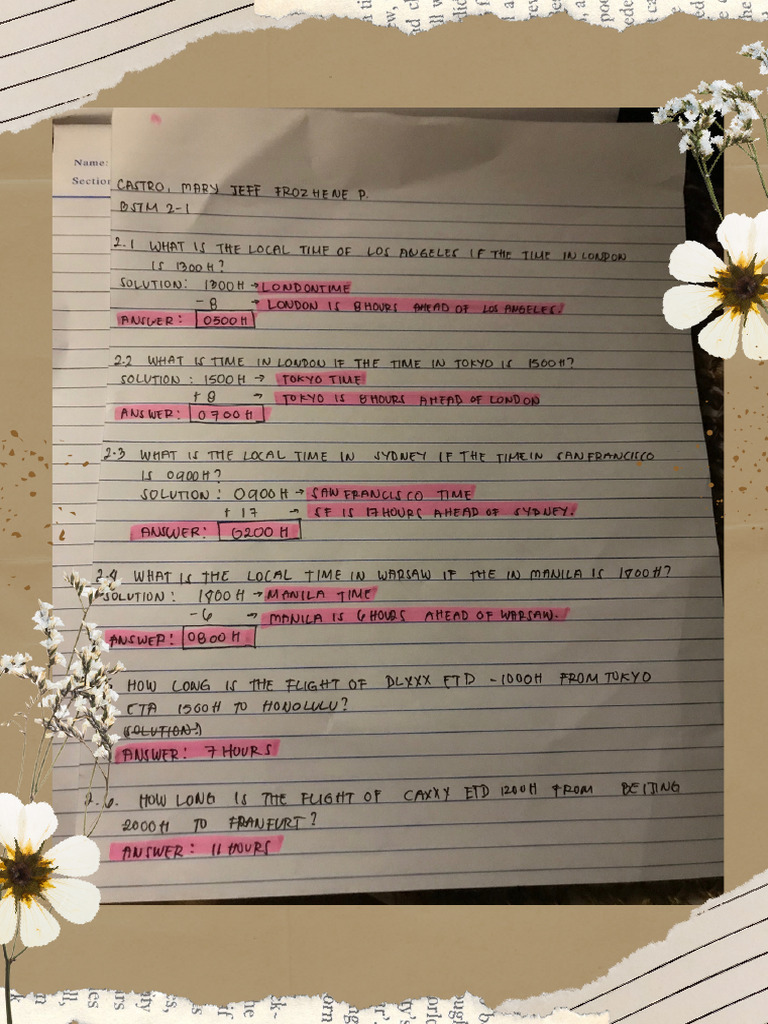 Name:
Section
CASTRO, MARY JEFF FROZHENE P.
BSTM 2-1
2.1 WHAT IS THE LOCAL TIME OF LOS ANGELES IF THE TIME IN LONDON
IS 1300H?
SOLUTION: 1300H → LONDON TIME
- 8 → LONDON IS 8 HOURS AHEAD OF LOS ANGELES.
ANSWER: 0500H
2.2 WHAT IS TIME IN LONDON IF THE TIME IN TOKYO IS 1500H?
SOLUTION: 1500H → TOKYO TIME
+ 8 → TOKYO IS 8 HOURS AHEAD OF LONDON
ANSWER: 0700H
2.3 WHAT IS THE LOCAL TIME IN SYDNEY IF THE TIME IN SAN FRANCISCO
IS 0900H?
SOLUTION: 0900H → SAN FRANCISCO TIME
+ 17 → SF IS 17 HOURS AHEAD OF SYDNEY.
ANSWER: 0200H
2.4 WHAT IS THE LOCAL TIME IN WARSAW IF THE IN MANILA IS 1800H?
SOLUTION: 1800H → MANILA TIME
- 6 → MANILA IS 6 HOURS AHEAD OF WARSAW.
ANSWER: 0800H
HOW LONG IS THE FLIGHT OF DLXXX ETD -1000H FROM TOKYO
ETA 1500H TO HONOLULU?
SOLUTION:
ANSWER: 7 HOURS
2.6. HOW LONG IS THE FLIGHT OF CAXXY ETD 1200H FROM BEIJING
2000H TO FRANFURT?
ANSWER: 11 HOURS